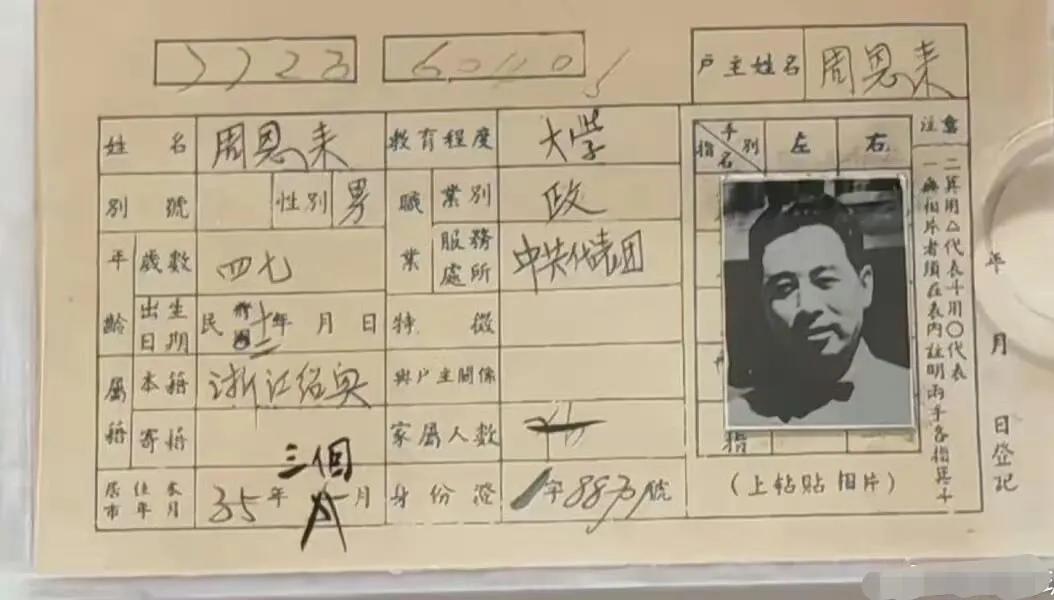 戶主姓名 周恩来
姓名 周恩来 教育程度 大学
别號 性别 男 職業 業别 政
年齡 歲數 四七 服務處所 中共代表团
出生日期 民 年 月 日 特徵
屬籍 本籍 浙江绍兴 與戶主關係
寄籍 家屬人數
居住本市年月 35年 三個 月 身份證 字 號
手别 指名 左 右
指
(上帖貼相片)
注意
一 無相片者須在表内註明兩手各指箕斗
二 箕用△代表斗用〇代表
年 月 日登記